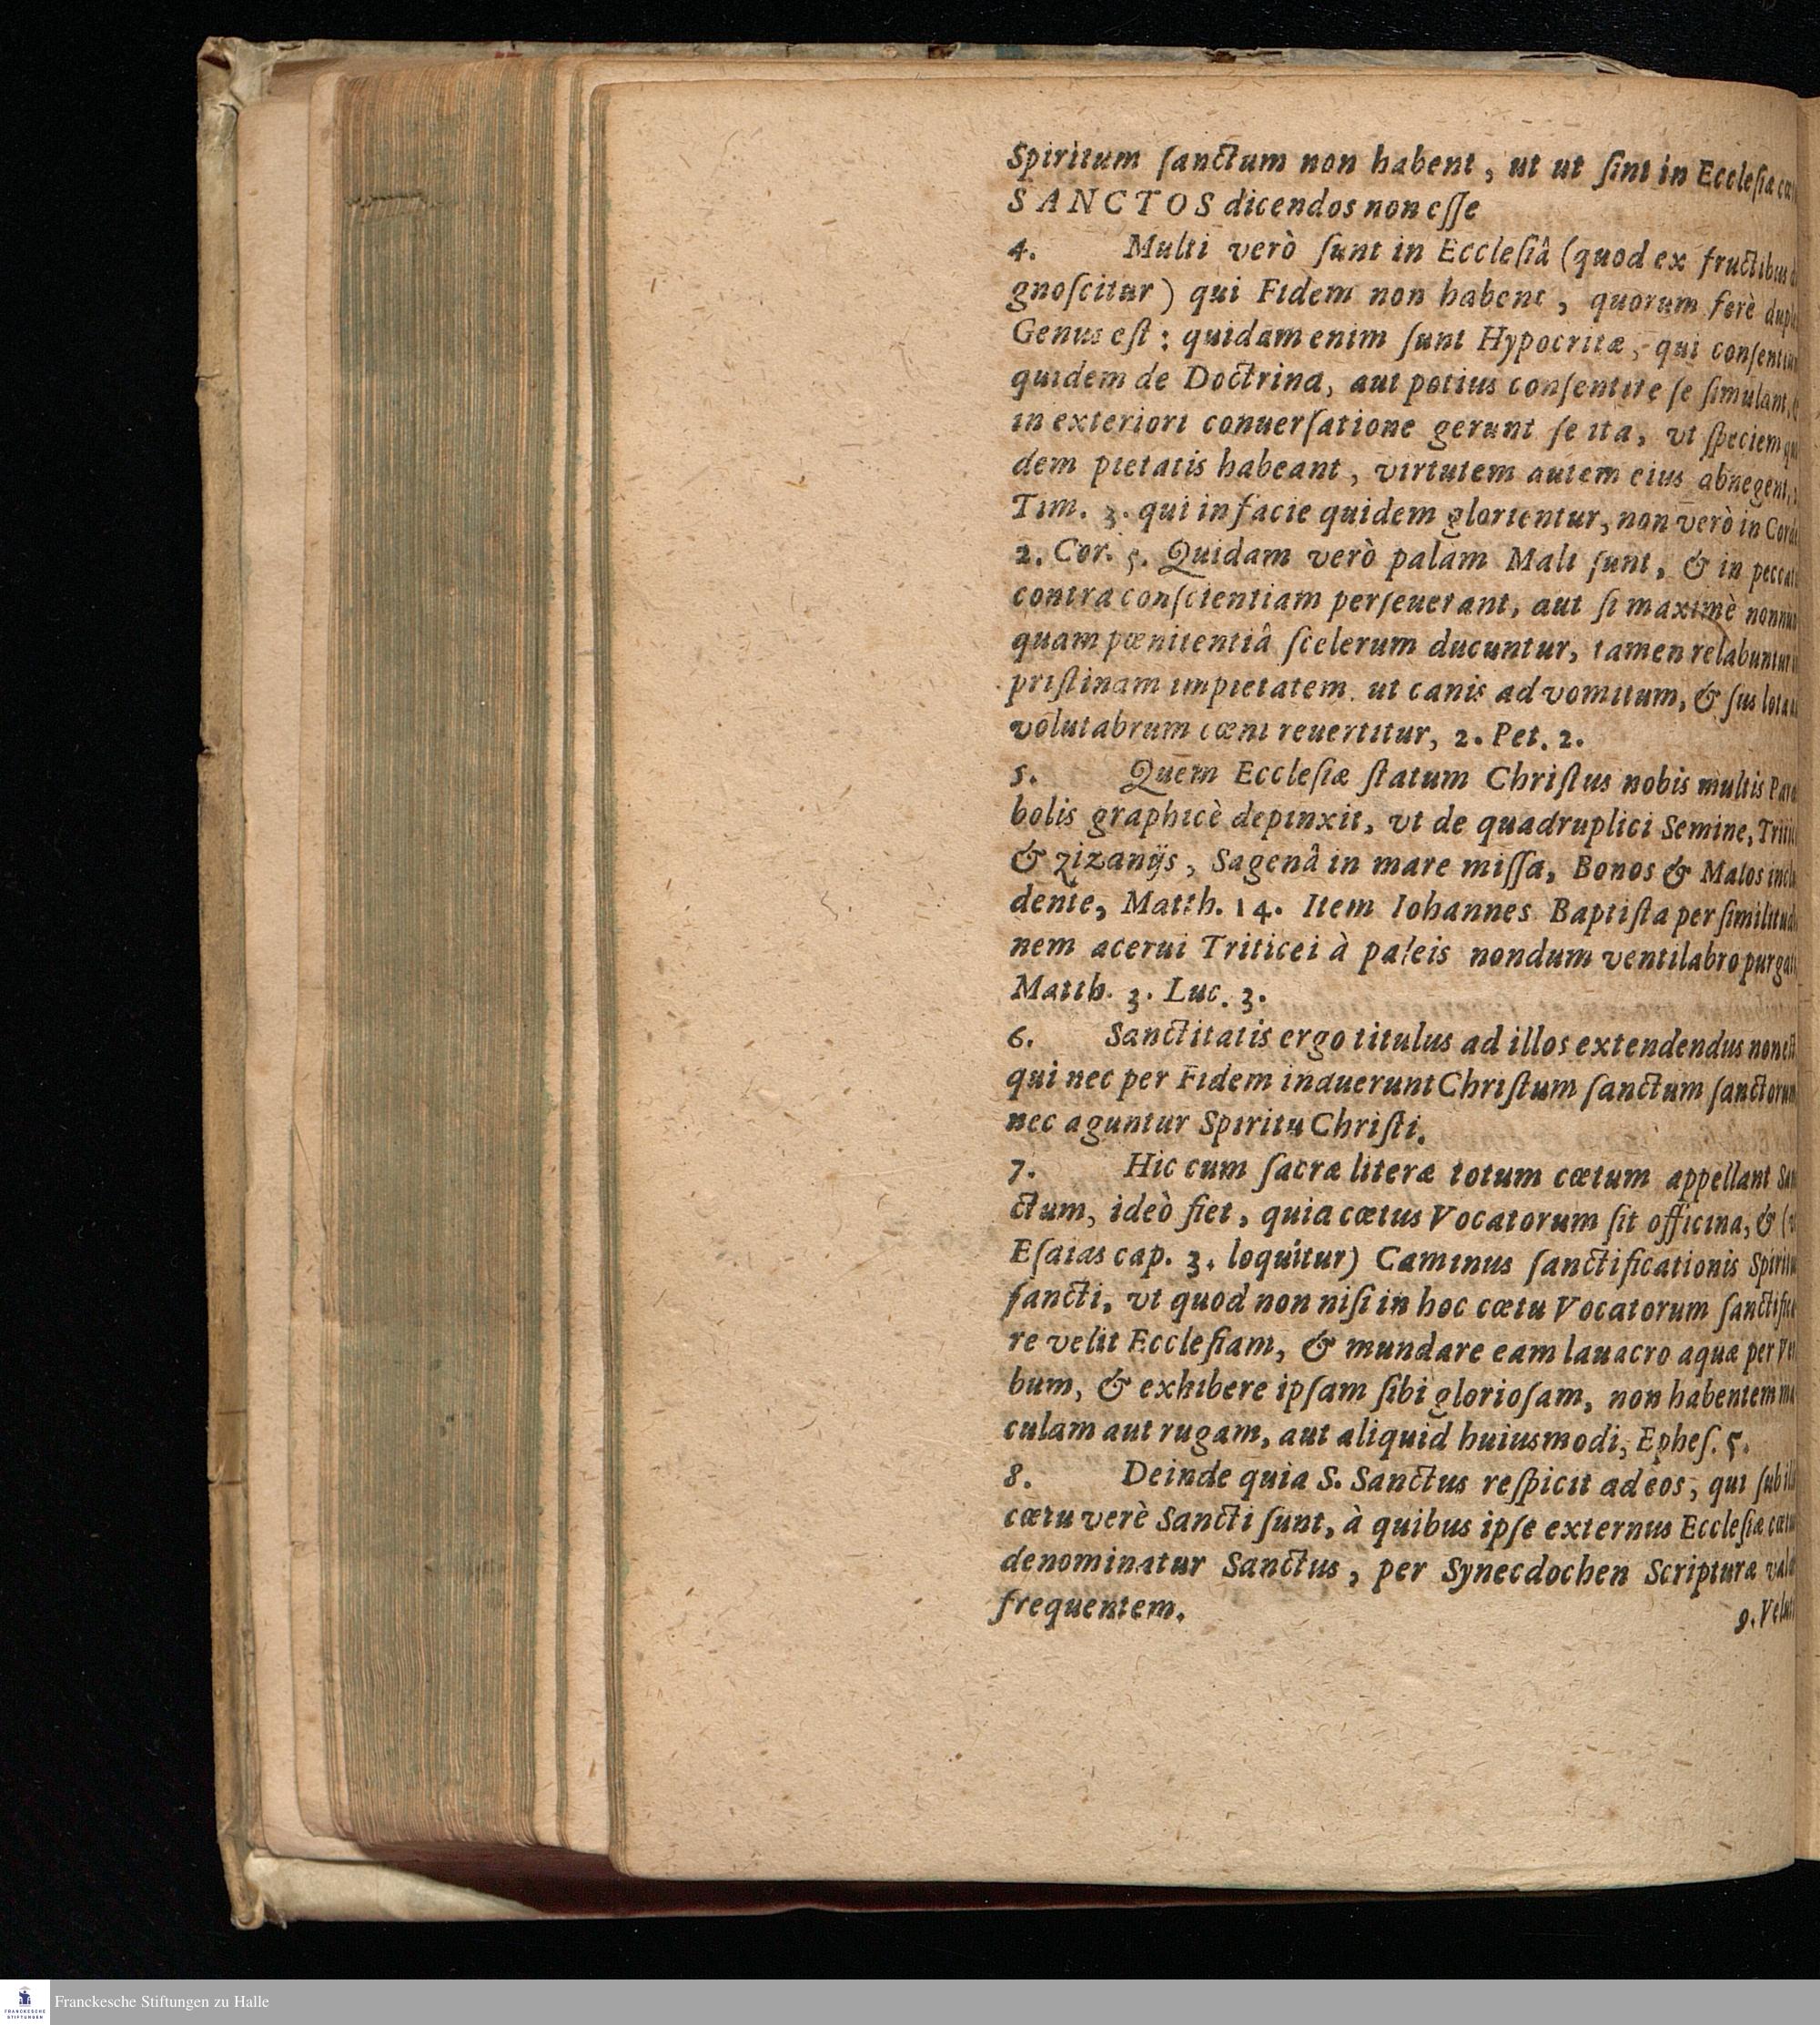 Spiritum ſanctum non habent, ut ut ſint in Eccleſiæ
SANCTOS dicendos non eſſe
4. Multi verò ſunt in Eccleſiâ (quod ex fructibus
gnoſcitur) qui Fidem non habent, quorum ferè
Genus eſt: quidam enim ſunt Hypocritæ, qui
quidem de Doctrina, aut potius conſentire ſe ſimulant,
in exteriori conuerſatione gerunt ſe ita, vt ſpeciem
dem pietatis habeant, virtutem autem eius abnegent,
Tim. 3. qui in facie quidem glorientur, non verò in
2. Cor. 5. Quidam verò palam Mali ſunt, & in
contra conſcientiam perſeuerant, aut ſi maximè
quam pœnitentiâ ſcelerum ducuntur, tamen relabuntur
priſtinam impietatem. ut canis ad vomitum, & ſus
volutabrum cœni reuertitur, 2. Pet. 2.
5. Quem Eccleſiæ ſtatum Chriſtus nobis multis
bolis graphicè depinxit, vt de quadruplici Semine,
& zizanijs, Sagenâ in mare miſſa, Bonos & Malos
dente, Matth. 14. Item Iohannes Baptiſta per
nem acerui Triticei à paleis nondum ventilabro
Matth. 3. Luc. 3.
6. Sanctitatis ergo titulus ad illos extendendus non
qui nec per Fidem induerunt Chriſtum ſanctum ſanctorum
nec aguntur Spiritu Chriſti.
7. Hic cum ſacræ literæ totum cœtum appellant
ctum, ideò fiet, quia cœtus Vocatorum ſit officina, &
Eſaias cap. 3. loquitur) Caminus ſanctificationis
ſancti, vt quod non niſi in hoc cœtu Vocatorum
re velit Eccleſiam, & mundare eam lauacro aquæ per
bum, & exhibere ipſam ſibi glorioſam, non habentem
culam aut rugam, aut aliquid huiusmodi, Epheſ. 5.
8. Deinde quia S. Sanctus reſpicit ad eos, qui
cœtu verè Sancti ſunt, à quibus ipſe externus Eccleſiæ
denominatur Sanctus, per Synecdochen Scripturæ
frequentem.
9.
Franckesche Stiftungen zu Halle
FRANCKESCHE
STIFTUNGEN